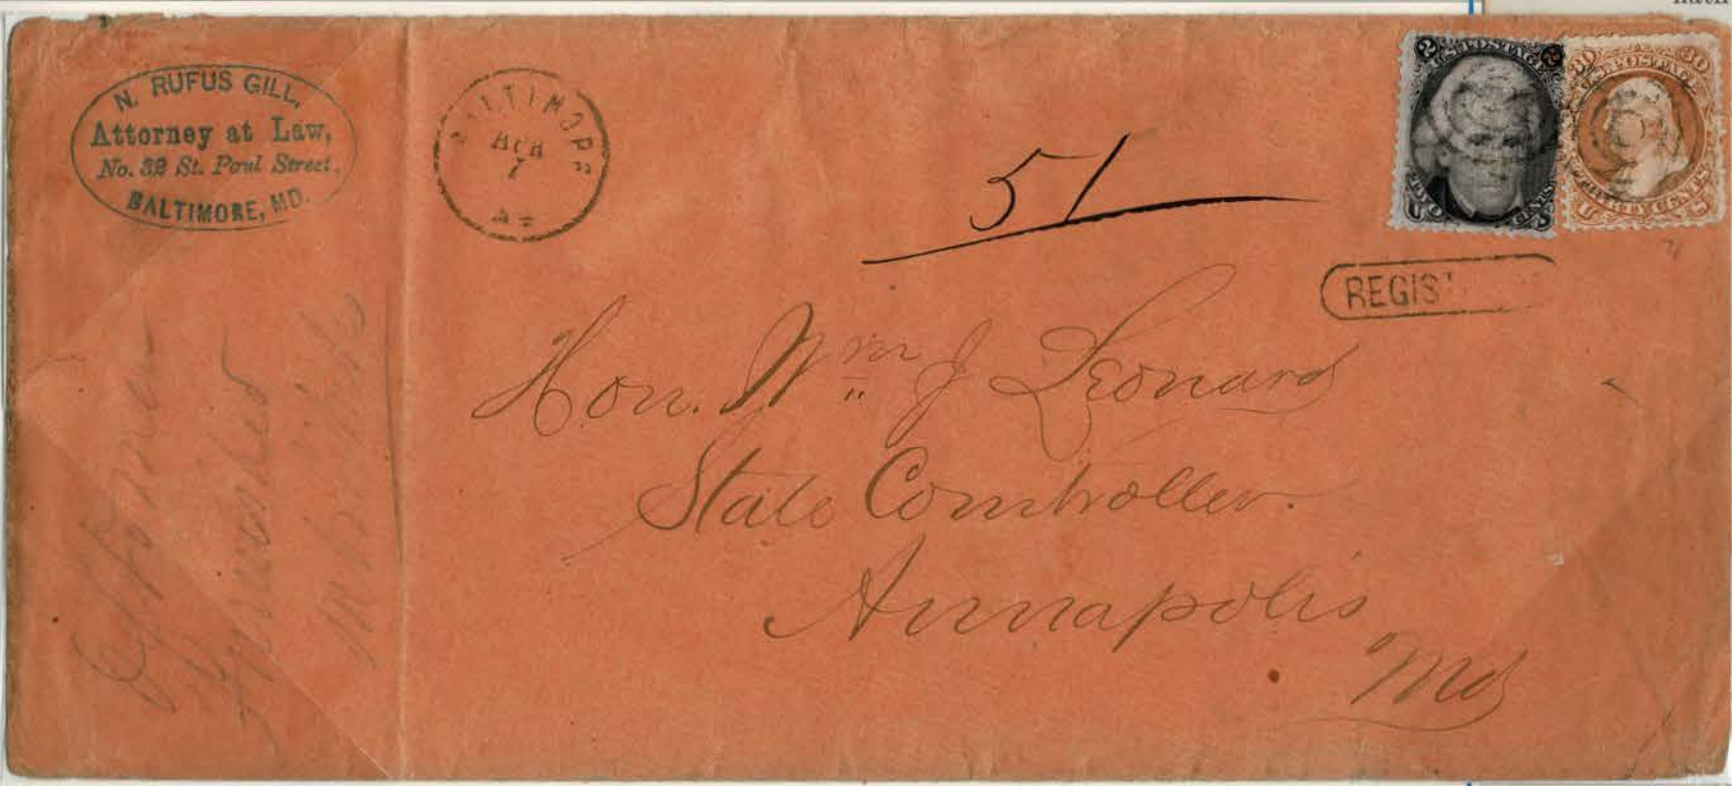 N. RUFUS GILL,
Attorney at Law,
No. 32 St. Paul Street,
BALTIMORE, MD.
BALTIMORE
7
51
2 U.S. POSTAGE 2
U S
30 U.S. POSTAGE 30
THIRTY CENTS
U S
REGIS
Hon. Wm J Leonard
State Comtroller.
Annapolis
Md